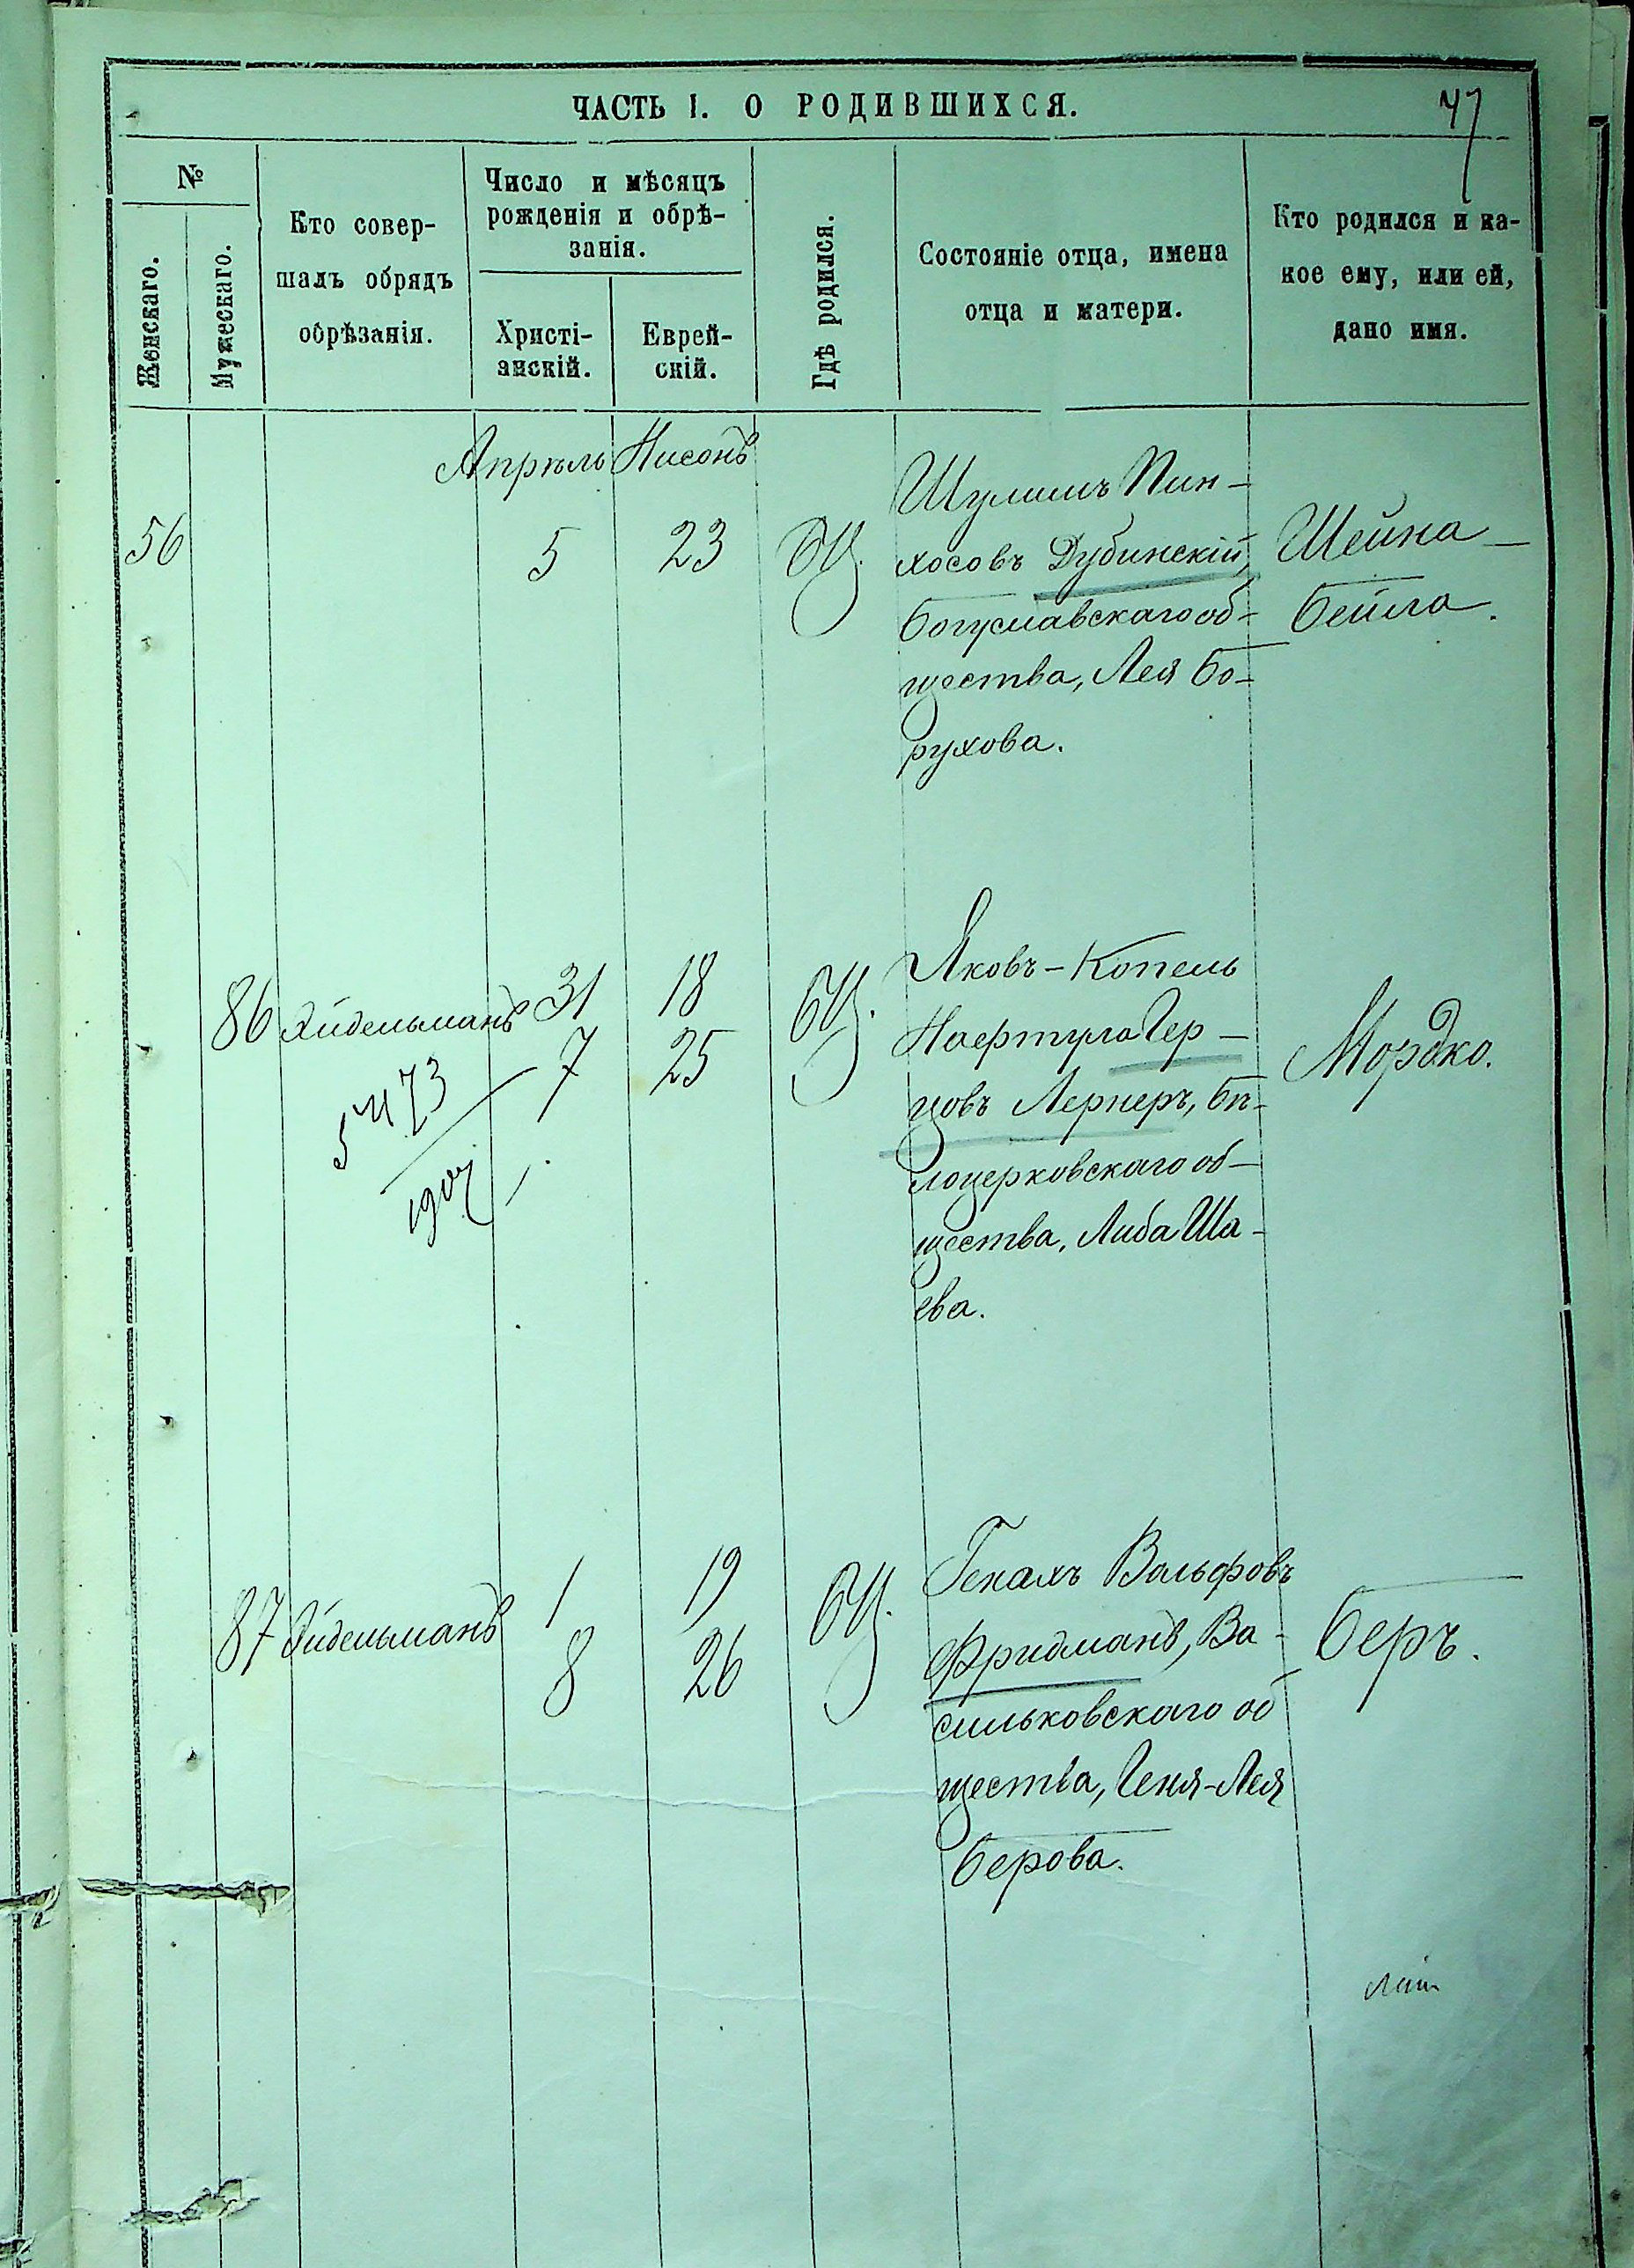 ЧАСТЬ I. О РОДИВШИХСЯ.
47
№
Женскаго.
Мужескаго.
Кто совер-
шалъ обрядъ
обрѣзанія.
Число и мѣсяцъ
рожденія и обрѣ-
занія.
Христі-
анскій.
Еврей-
скій.
Гдѣ родился.
Состояніе отца, имена
отца и матери.
Кто родился и ка-
кое ему, или ей,
дано имя.
Апрѣль Нисонъ
56
5
23
БЦ.
Шулимъ Пин-
хосовъ Дубинскій,
Богуславскаго об-
щества, Лея Бо-
рухова.
Шейна-
Бейла.
86 Эйдельманъ
31
18
7
25
БЦ.
5473
1904
Яковъ-Копель
Нафтула Гер-
цовъ Лернеръ, Бѣ-
лоцерковскаго об-
щества, Либа Ша-
ева.
Мордко.
87 Эйдельманъ
1
19
8
26
БЦ.
Генахъ Вольфовъ
Фридманъ, Ва-
сильковскаго об
щества, Геня-Лея
Берова.
Беръ.